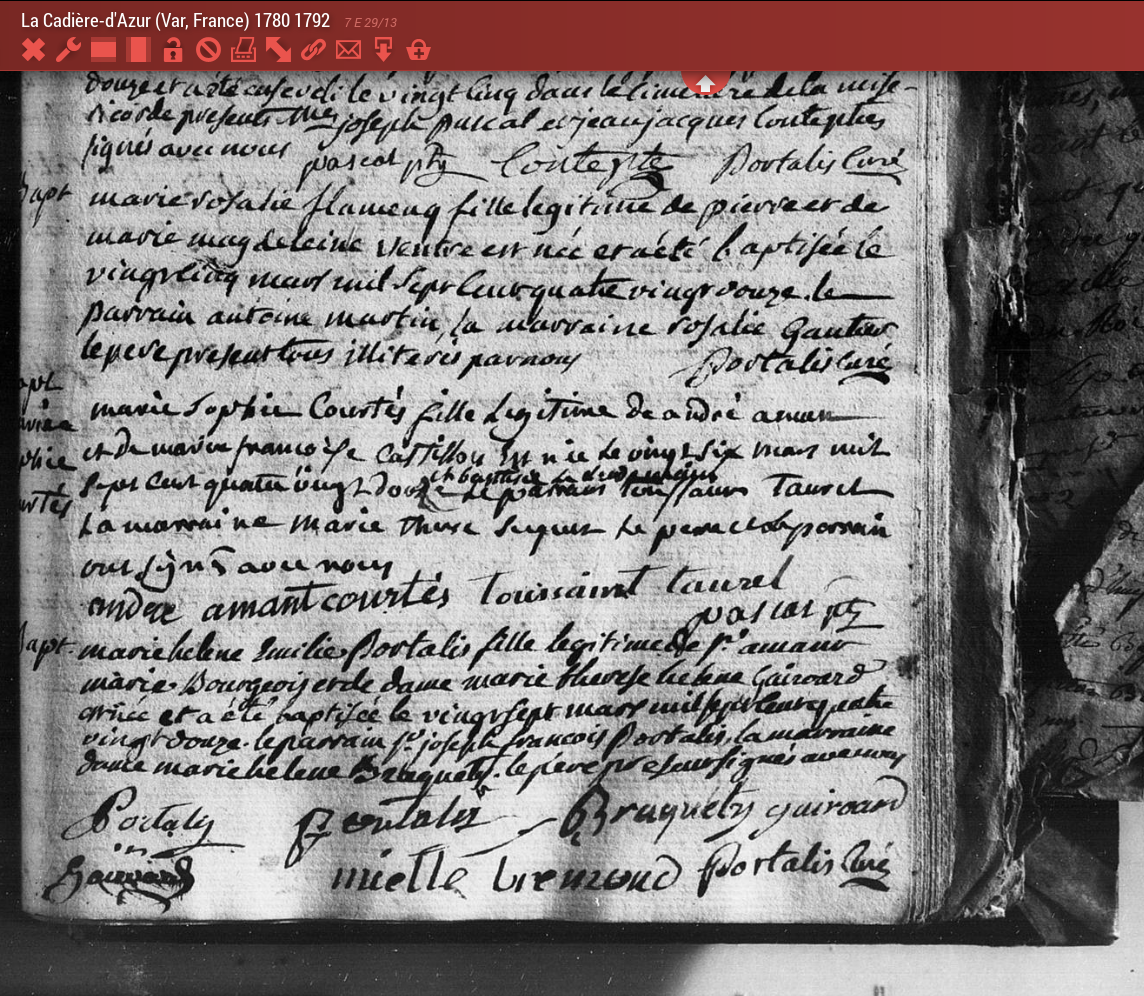 La Cadière-d'Azur (Var, France) 1780 1792 7 E 29/13
douze et a été enseveli le vingt cinq dans le cimetière de la mise-
ricorde presents mes joseph pascal et jean jacques
signés avec nous pascal ptr Portalis Curé
bapt marie rosalie flamenq fille legitime de pierre et de
marie magdeleine ventre est née et a été baptisée le
vingt cinq mars mil sept cent quatre vingt douze. le
parrain antoine martin, la marraine rosalie Gautier
le pere present tous illiteres par nous Portalis Curé
marie Sophie Courtés fille legitime de andré aman
et de marie françoise est née le vingt six mars mil
et baptisée le lendemain
Sept Cent quatre vingt douze le parrain toussaint Taurel
La marraine marie therese le pere et le parrain
ont signés avec nous
andré amant courtés toussaint taurel
pascal ptr
bapt marie helene Emilie Portalis fille legitime de Sr. amant
marie Bourgeois et de dame marie therese helene Gairoard
est née et a été baptisée le vingt sept mars mil sept cent quatre
vingt douze. le parrain Sr. joseph francois Portalis, la marraine
dame marie helene Braquety. le pere present signés avec nous
Portaly Portalis Braquety gairoard
Gairoard mielle bremond Portalis Curé